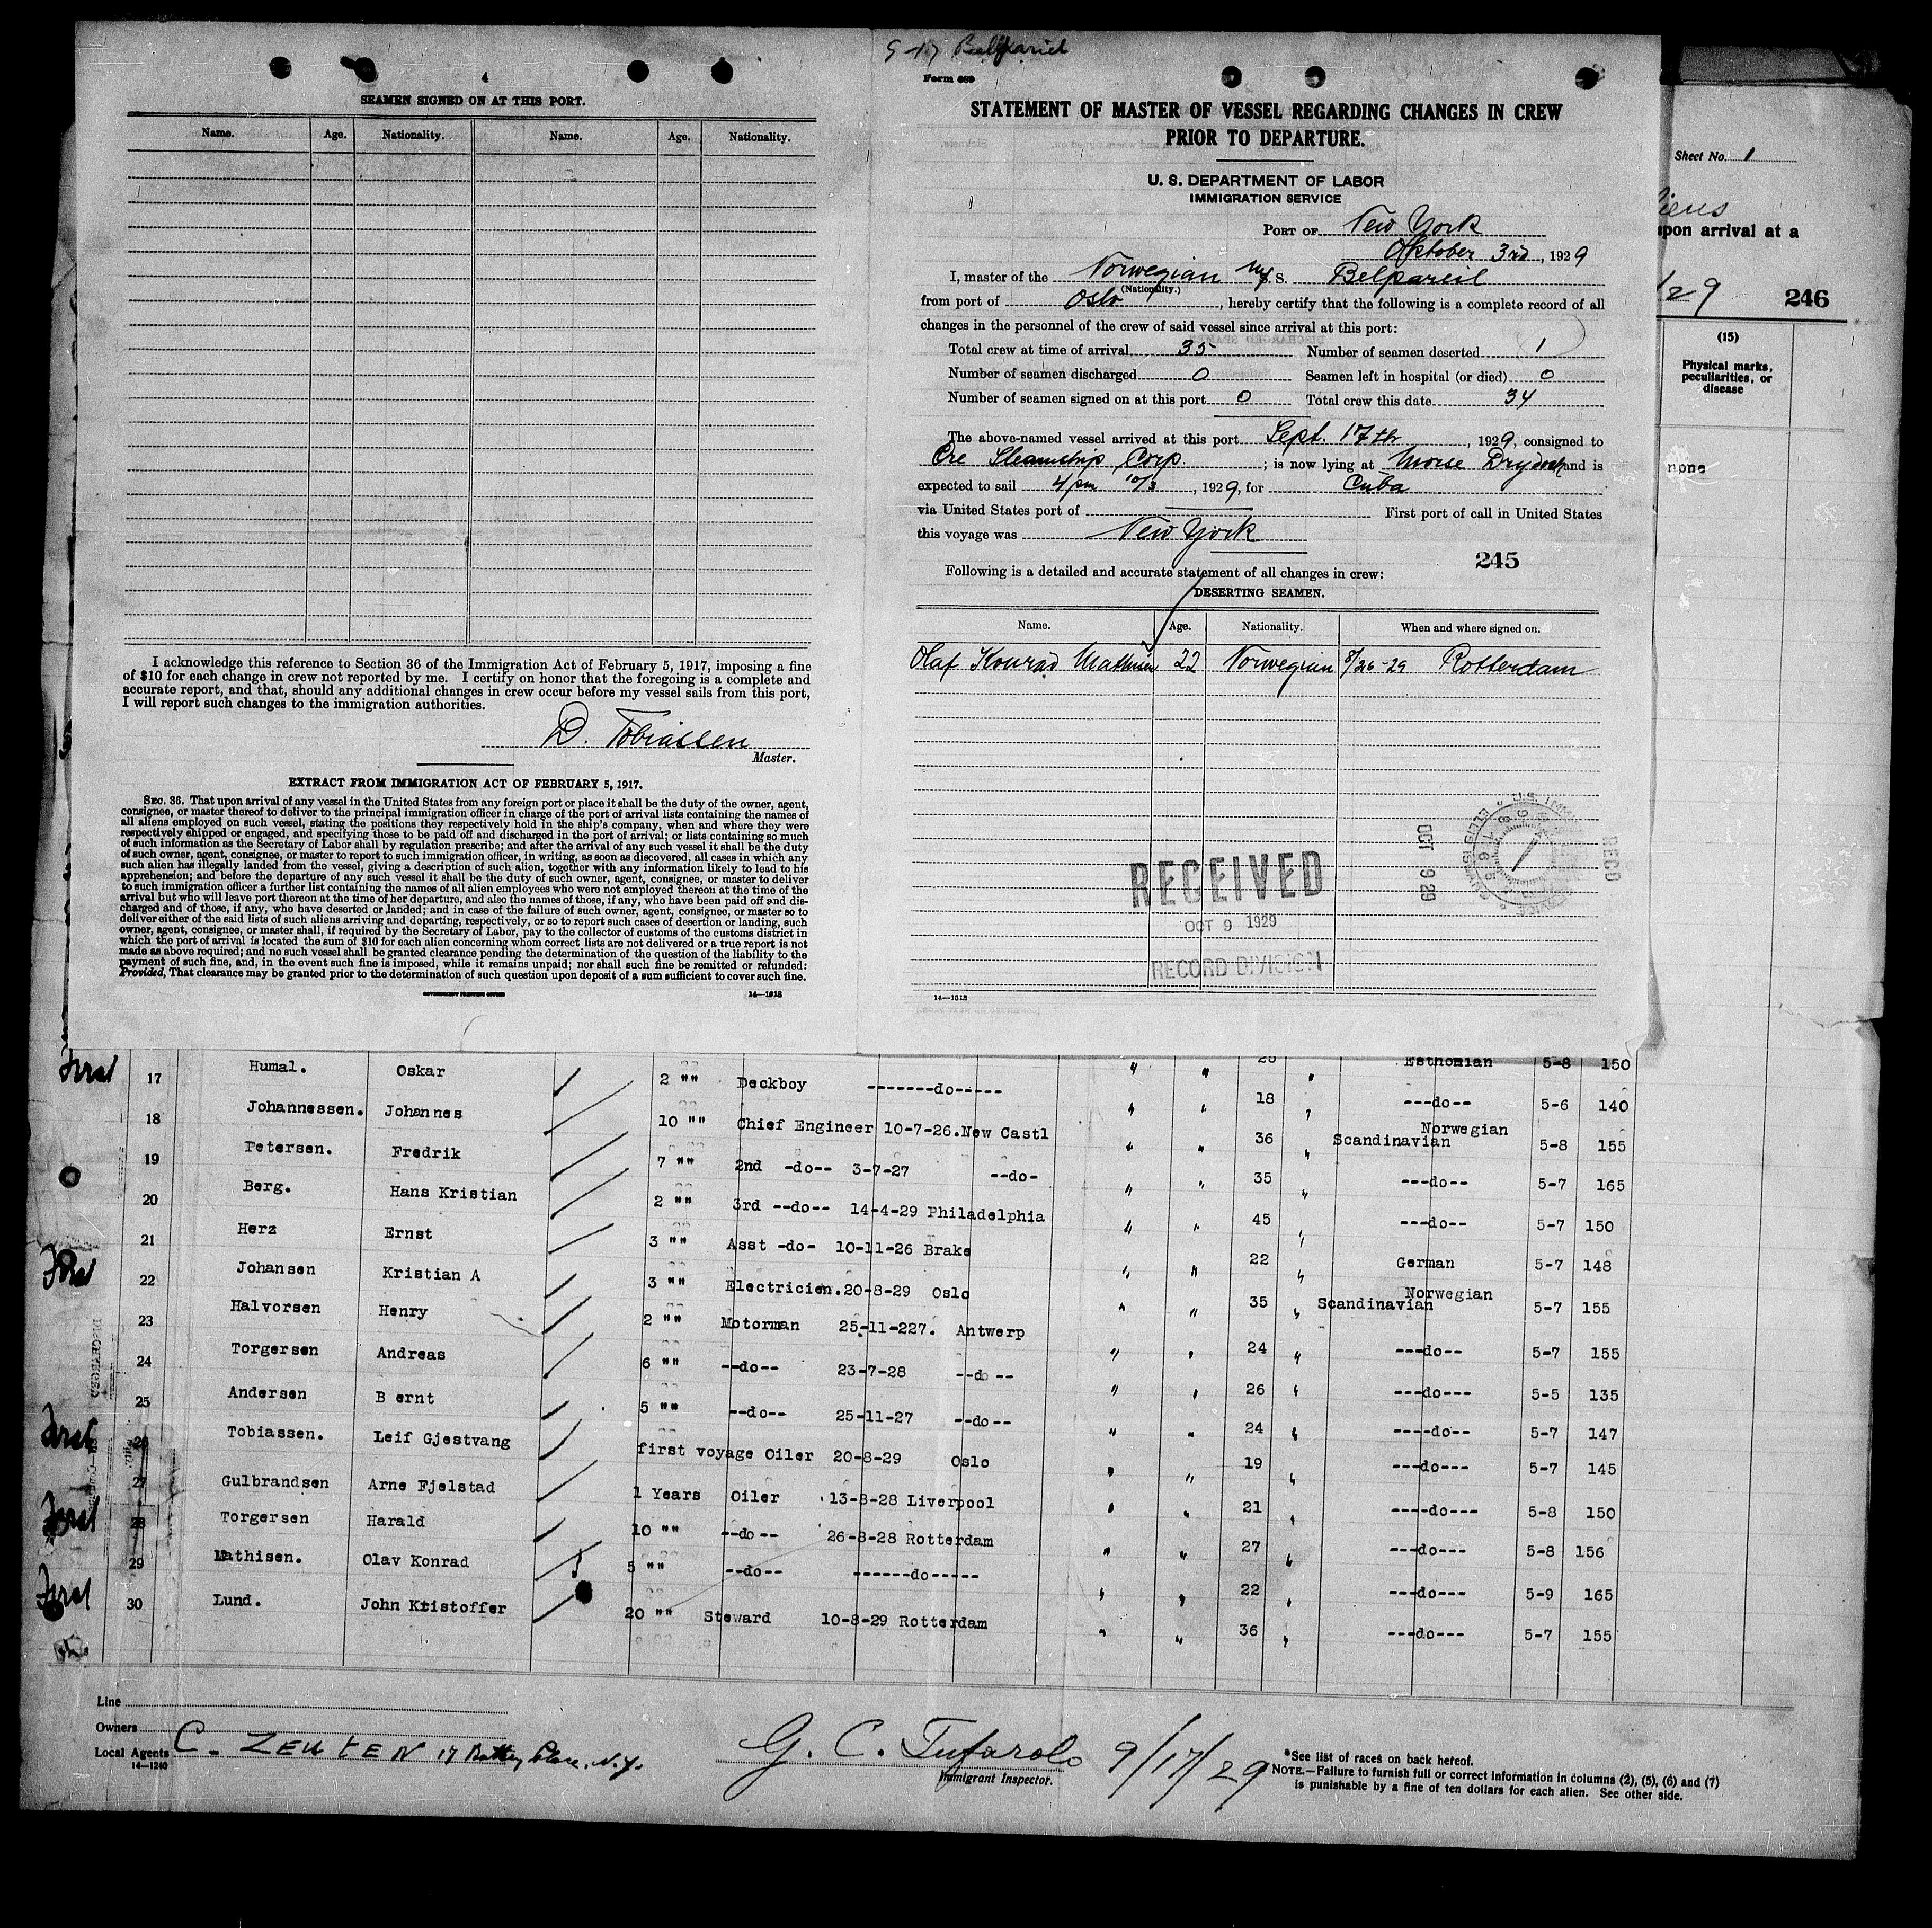 4
SEAMEN SIGNED ON AT THIS PORT.
Name. Age. Nationality. Name. Age. Nationality.
I acknowledge this reference to Section 36 of the Immigration Act of February 5, 1917, imposing a fine
of $10 for each change in crew not reported by me. I certify on honor that the foregoing is a complete and
accurate report, and that, should any additional changes in crew occur before my vessel sails from this port,
I will report such changes to the immigration authorities.
D. Tobiassen
Master.
EXTRACT FROM IMMIGRATION ACT OF FEBRUARY 5, 1917.
SEC. 36. That upon arrival of any vessel in the United States from any foreign port or place it shall be the duty of the owner, agent,
consignee, or master thereof to deliver to the principal immigration officer in charge of the port of arrival lists containing the names of
all aliens employed on such vessel, stating the positions they respectively hold in the ship's company, when and where they were
respectively shipped or engaged, and specifying those to be paid off and discharged in the port of arrival; or lists containing so much
of such information as the Secretary of Labor shall by regulation prescribe; and after the arrival of any such vessel it shall be the duty
of such owner, agent, consignee, or master to report to such immigration officer, in writing, as soon as discovered, all cases in which any
such alien has illegally landed from the vessel, giving a description of such alien, together with any information likely to lead to his
apprehension; and before the departure of any such vessel it shall be the duty of such owner, agent, consignee, or master to deliver
to such immigration officer a further list containing the names of all alien employees who were not employed thereon at the time of the
arrival but who will leave port thereon at the time of her departure, and also the names of those, if any, who have been paid off and dis-
charged and of those, if any, who have deserted or landed; and in case of the failure of such owner, agent, consignee, or master so to
deliver either of the said lists of such aliens arriving and departing, respectively, or so to report such cases of desertion or landing, such
owner, agent, consignee, or master shall, if required by the Secretary of Labor, pay to the collector of customs of the customs district in
which the port of arrival is located the sum of $10 for each alien concerning whom correct lists are not delivered or a true report is not
made as above required; and no such vessel shall be granted clearance pending the determination of the question of the liability to the
payment of such fine, and, in the event such fine is imposed, while it remains unpaid; nor shall such fine be remitted or refunded:
Provided, That clearance may be granted prior to the determination of such question upon deposit of a sum sufficient to cover such fine.
GOVERNMENT PRINTING OFFICE 14—1313
9-17 Belpareil
Form 689
STATEMENT OF MASTER OF VESSEL REGARDING CHANGES IN CREW
PRIOR TO DEPARTURE.
U. S. DEPARTMENT OF LABOR
IMMIGRATION SERVICE
PORT OF New York
Oktober 3rd, 1929
I, master of the Norwegian M/S. Belpareil
(Nationality.)
from port of Oslo, hereby certify that the following is a complete record of all
changes in the personnel of the crew of said vessel since arrival at this port:
Total crew at time of arrival 35 Number of seamen deserted 1
Number of seamen discharged 0 Seamen left in hospital (or died) 0
Number of seamen signed on at this port 0 Total crew this date 34
The above-named vessel arrived at this port Sept. 17th, 1929, consigned to
Ore Steamship Corp.; is now lying at Morse Drydock and is
expected to sail 4 pm 10/3, 1929, for Cuba
via United States port of First port of call in United States
this voyage was New York
245
Following is a detailed and accurate statement of all changes in crew:
DESERTING SEAMEN.
Name. Age. Nationality. When and where signed on.
Olaf Konrad Mathisen 22 Norwegian 8/26-29 Rotterdam
RECEIVED
OCT 9 1929
RECORD DIVISION
OCT 9 29
RECD
14—1313
Sheet No. 1
upon arrival at a
/29 246
(15)
Physical marks,
peculiarities, or
disease
none
25 Esthonian 5-8 150
First 17 Humal. Oskar 2 "" Deckboy -------do----- " " 18 " ---do-- 5-6 140
18 Johannessen. Johannes 10 "" Chief Engineer 10-7-26.New Castl " " 36 " Norwegian Scandinavian 5-8 155
19 Petersen. Fredrik 7 "" 2nd -do-- 3-7-27 --do- " " 35 " ---do-- 5-7 165
20 Berg. Hans Kristian 2 "" 3rd --do-- 14-4-29 Philadelphia " " 45 " ---do-- 5-7 150
21 Herz Ernst 3 "" Asst -do- 10-11-26 Brake " " 22 " German 5-7 148
First 22 Johansen Kristian A 3 "" Electricien.20-8-29 Oslo " " 35 " Norwegian Scandinavian 5-7 155
23 Halvorsen Henry 2 "" Motorman 25-11-227. Antwerp " " 24 " ---do-- 5-7 155
24 Torgersen Andreas 6 "" --do-- 23-7-28 --do-- " " 26 " ---do--- 5-5 135
25 Andersen B ernt 5 "" --do-- 25-11-27 --do-- " " 24 " ----do-- 5-7 147
First 26 Tobiassen. Leif Gjestvang first voyage Oiler 20-8-29 Oslo " " 19 " ---do--- 5-7 145
27 Gulbrandsen Arne Fjelstad 1 Years Oiler 13-8-28 Liverpool " " 21 " ----do--- 5-8 150
First 28 Torgersen Harald 10 "" --do-- 26-8-28 Rotterdam " " 27 " ---do--- 5-8 156
29 Mathisen. Olav Konrad 5 "" --do-- ------do----- " " 22 " ---do--- 5-9 165
First 30 Lund. John Kristoffer 20 "" Steward 10-8-29 Rotterdam " " 36 " ---do--- 5-7 155
Line
Owners
Local Agents C. ZEUTEN 17 Battery Place, N.Y.
14—1240
G. C. Tufarolo 9/17/29
Immigrant Inspector.
*See list of races on back hereof.
NOTE.—Failure to furnish full or correct information in columns (2), (5), (6) and (7)
is punishable by a fine of ten dollars for each alien. See other side.